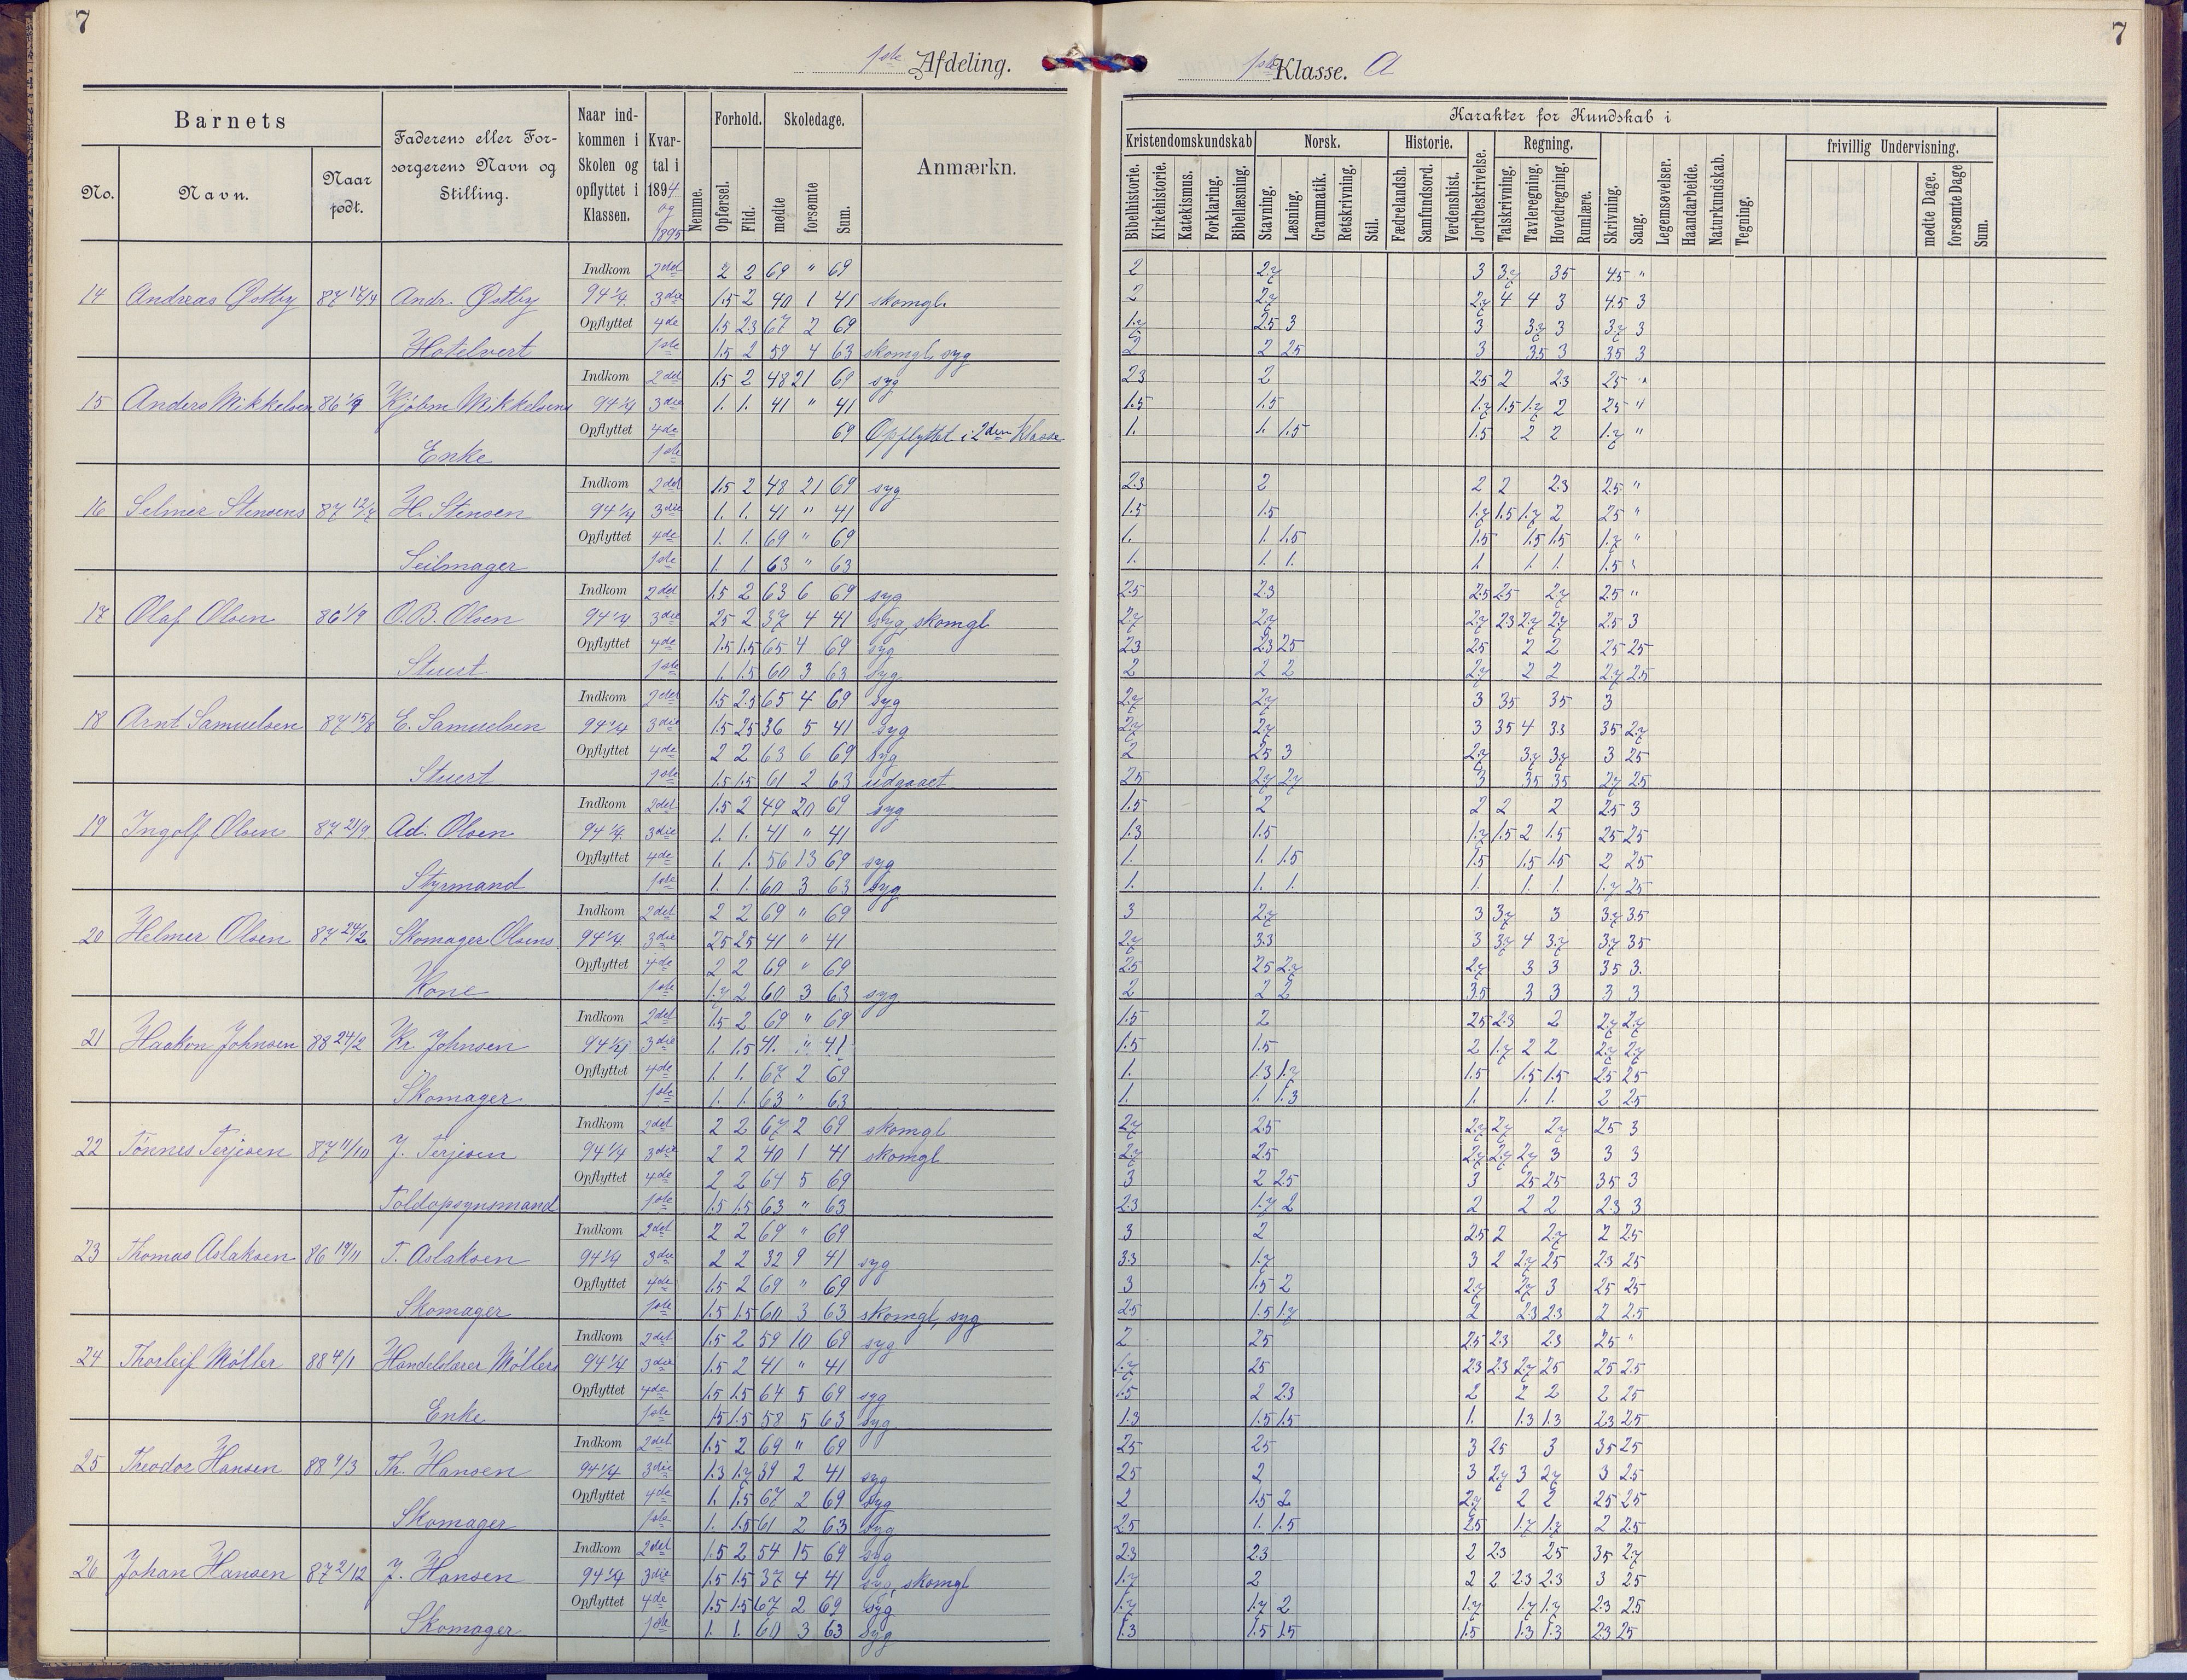 7
1ste Afdeling.
1ste Klasse. A
7
Barnets
No.
Navn.
Naar født.
Faderens eller Forsørgerens Navn og Stilling.
Naar indkommen i Skolen og opflyttet i Klassen.
Kvartal i 1894 og 1895
Nemme.
Forhold.
Opførsel.
Flid.
Skoledage.
mødte
forsømte
Sum.
Anmærkn.
Karakter for Kundskab i
Kristendomskundskab
Norsk.
Historie.
Regning.
frivillig Undervisning.
Bibelhistorie.
Kirkehistorie.
Katekismus.
Forklaring.
Bibellæsning.
Stavning.
Læsning.
Grammatik.
Retskrivning.
Stil.
Fædrelandsh.
Samfundsord.
Verdenshist.
Jordbeskrivelse.
Talskrivning.
Tavleregning.
Hovedregning.
Rumlære.
Skrivning.
Sang.
Legemsøvelser.
Haandarbeide.
Naturkundskab.
Tegning.
mødte Dage.
forsømte Dage
Sum.
Indkom 2det 2 2 69 " 69 2 2.7 3 3.7 35 45 "
14 Andreas Østby Andr. Østby 94 1/4 3die 1.5 2 40 1 41 skomgl. 2 2.7 2.7 4 4 3 4.5 3
Opflyttet 4de 1.5 23 67 2 69 1.7 25 3 3 3.7 3 3.7 3
Hotelvert 1ste 1.5 2 59 4 63 skomgl, syg 2 2 25 3 35 3 35 3
Indkom 2det 1.5 2 48 21 69 syg 23 2 25 2 23 25 "
15 Anders Mikkelsen Kjøbm Mikkelsens 94 1/4 3die 1. 1. 41 " 41 1.5 1.5 1.7 1.5 1.7 2 25 "
Opflyttet 4de 69 Opflyttet i 2den Klasse 1. 1. 1.5 1.5 2 2 1.7 "
Enke 1ste
Indkom 2det 1.5 2 48 21 69 syg 2.3 2 2 2 23 2.5 "
16 Selmer Stensens H. Stensen 94 1/4 3die 1. 1. 41 " 41 1.5 1.5 1.7 1.5 1.7 2 25 "
Opflyttet 4de 1. 1. 69 " 69 1. 1. 1.5 1.5 1.5 1.5 1.7 "
Seilmager 1ste 1. 1. 63 " 63 1. 1. 1. 1. 1. 1. 1.5 "
Indkom 2det 1.5 2 63 6 69 syg 2.5 2.3 25 25 2.7 25 "
17 Olaf Olsen 86 1/9 O.B. Olsen 94 1/4 3die 25 2 37 4 41 syg, skomgl 2.7 2.7 2.7 23 2.7 2.7 25 3
Opflyttet 4de 1.5 1.5 65 4 69 syg 23 23 25 25 2 2 25 25
Stuert 1ste 1. 1.5 60 3 63 syg 2 2 2 2.7 2 2 2.7 25
Indkom 2det 1.5 2.5 65 4 69 syg 2.7 2.7 3 35 35 3
18 Arnt Samuelsen 87 15/8 E. Samuelsen 94 1/4 3die 1.5 25 36 5 41 syg 2.7 2.7 3 35 4 33 35 2.7
Opflyttet 4de 2 2 63 6 69 syg 2 25 3 2.7 3.7 3.7 3 25
Stuert 1ste 1.5 1.5 61 2 63 udgaaet 25 2.7 2.7 3 35 35 2.7 25
Indkom 2det 1.5 2 49 20 69 syg 1.5 2 2 2 2 25 3
19 Ingolf Olsen 87 21/9 Ad. Olsen 94 1/4 3die 1. 1. 41 " 41 1.3 1.5 1.7 1.5 2 1.5 25 25
Opflyttet 4de 1. 1. 56 13 69 syg 1. 1. 1.5 1.5 1.5 1.5 2 25
Styrmand 1ste 1. 1. 60 3 63 syg 1. 1. 1. 1. 1. 1. 1.7 25
Indkom 2det 2 2 69 " 69 3 2.7 3 3.7 3 3.7 3.5
20 Helmer Olsen 87 24/2 Skomager Olsens 94 1/4 3die 25 25 41 " 41 2.7 3.3 3 3.7 4 3.7 3.7 35
Opflyttet 4de 2 2 69 " 69 25 25 2.7 2.7 3 3 35 3.
Kone 1ste 1.7 2 60 3 63 syg 2 2 2 3.5 3 3 3 3
Indkom 2det 1.5 2 69 " 69 1.5 2 25 23 2 2.7 2.7
21 Haakon Johnsen 88 24/2 Kr. Johnsen 94 1/4 3die 1. 1.5 41. " 41 1.5 1.5 2 1.7 2 2 2.7 2.7
Opflyttet 4de 1. 1. 67 2 69 1. 1.3 1.7 1.5 1.5 1.5 25 25
Skomager 1ste 1. 1. 63 " 63 1. 1. 1.3 1. 1. 1. 2 25
Indkom 2det 2 2 67 2 69 skomgl 2.7 2.5 2.7 2.7 2.7 25 3
22 Tønnes Terjesen 87 11/10 J. Terjesen 94 1/4 3die 2 2 40 1 41 skomgl 2.7 2.5 2.7 2.7 2.7 3 3 3
Opflyttet 4de 2 2 64 5 69 3 2 25 3 25 25 35 3
Toldopsynsmand 1ste 1.5 1.5 63 " 63 2.3 1.7 2 2 2 2 2.3 3
Indkom 2det 2 2 69 " 69 3 2 25 2 2.7 2 25
23 Thomas Aslaksen 86 19/11 T. Aslaksen 94 1/4 3die 2 2 32 9 41 syg 33 1.7 3 2 2.7 25 23 25
Opflyttet 4de 1.5 2 69 " 69 3 1.5 2 2.7 2.7 3 25 25
Skomager 1ste 1.5 1.5 60 3 63 skomgl, syg 25 1.5 1.7 2 23 23 2 2.5
Indkom 2det 1.5 2 59 10 69 syg 2 25 25 23 23 25 "
24 Thorleif Møller 88 4/1 Handelslærer Møllers 94 1/4 3die 1.5 2 41 " 41 1.7 25 23 23 2.7 25 25 25
Opflyttet 4de 1.5 1.5 64 5 69 syg 1.5 2 23 2 2 2 2 25
Enke 1ste 1.5 1.5 58 5 63 syg 1.3 1.5 1.5 1. 1.3 1.3 23 25
Indkom 2det 1.5 2 69 " 69 25 25 3 25 3 35 25
25 Theodor Hansen 88 9/3 Th. Hansen 94 1/4 3die 1.3 1.7 39 2 41 syg 25 2 3 2.7 3 2.7 3 25
Opflyttet 4de 1. 1.5 67 2 69 syg 2 1.5 2 2.7 2 2 25 25
Skomager 1ste 1. 1.5 61 2 63 syg 25 1. 1.5 25 1.7 1.7 2 25
Indkom 2det 1.5 2 54 15 69 syg 23 23 2 23 25 35 2.7
26 Johan Hansen 87 2/12 J. Hansen 94 1/4 3die 1.5 1.5 37 4 41 syg, skomgl 1.7 2 2 2 23 2.3 3 25
Opflyttet 4de 1.5 1.5 67 2 69 syg 1.7 1.7 2 1.7 1.7 1.7 23 25
Skomager 1ste 1. 1. 60 3 63 syg 1.3 1.5 1.5 1.5 1.3 1.3 23 25